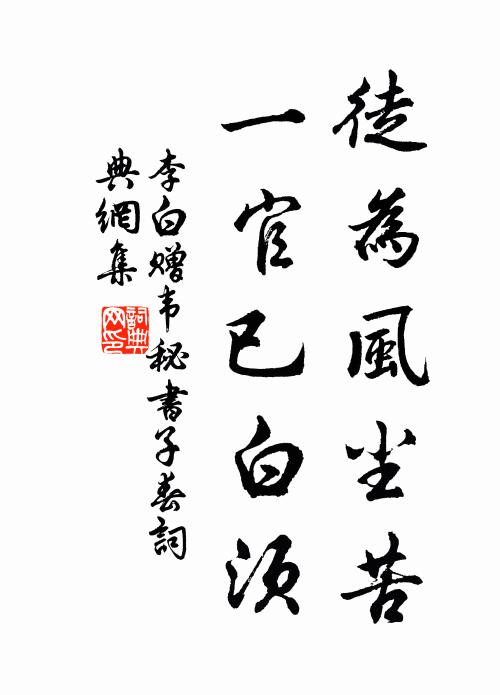 徒為風尘苦
一官已白须
李白赠韦秘書子春詞
典網集
詞典
网印